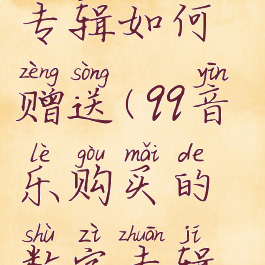 专辑如何
zèng sòng yīn
赠送(99音
lè gòu mǎi de
乐购买的
shù zì zhuān jí
数字专辑